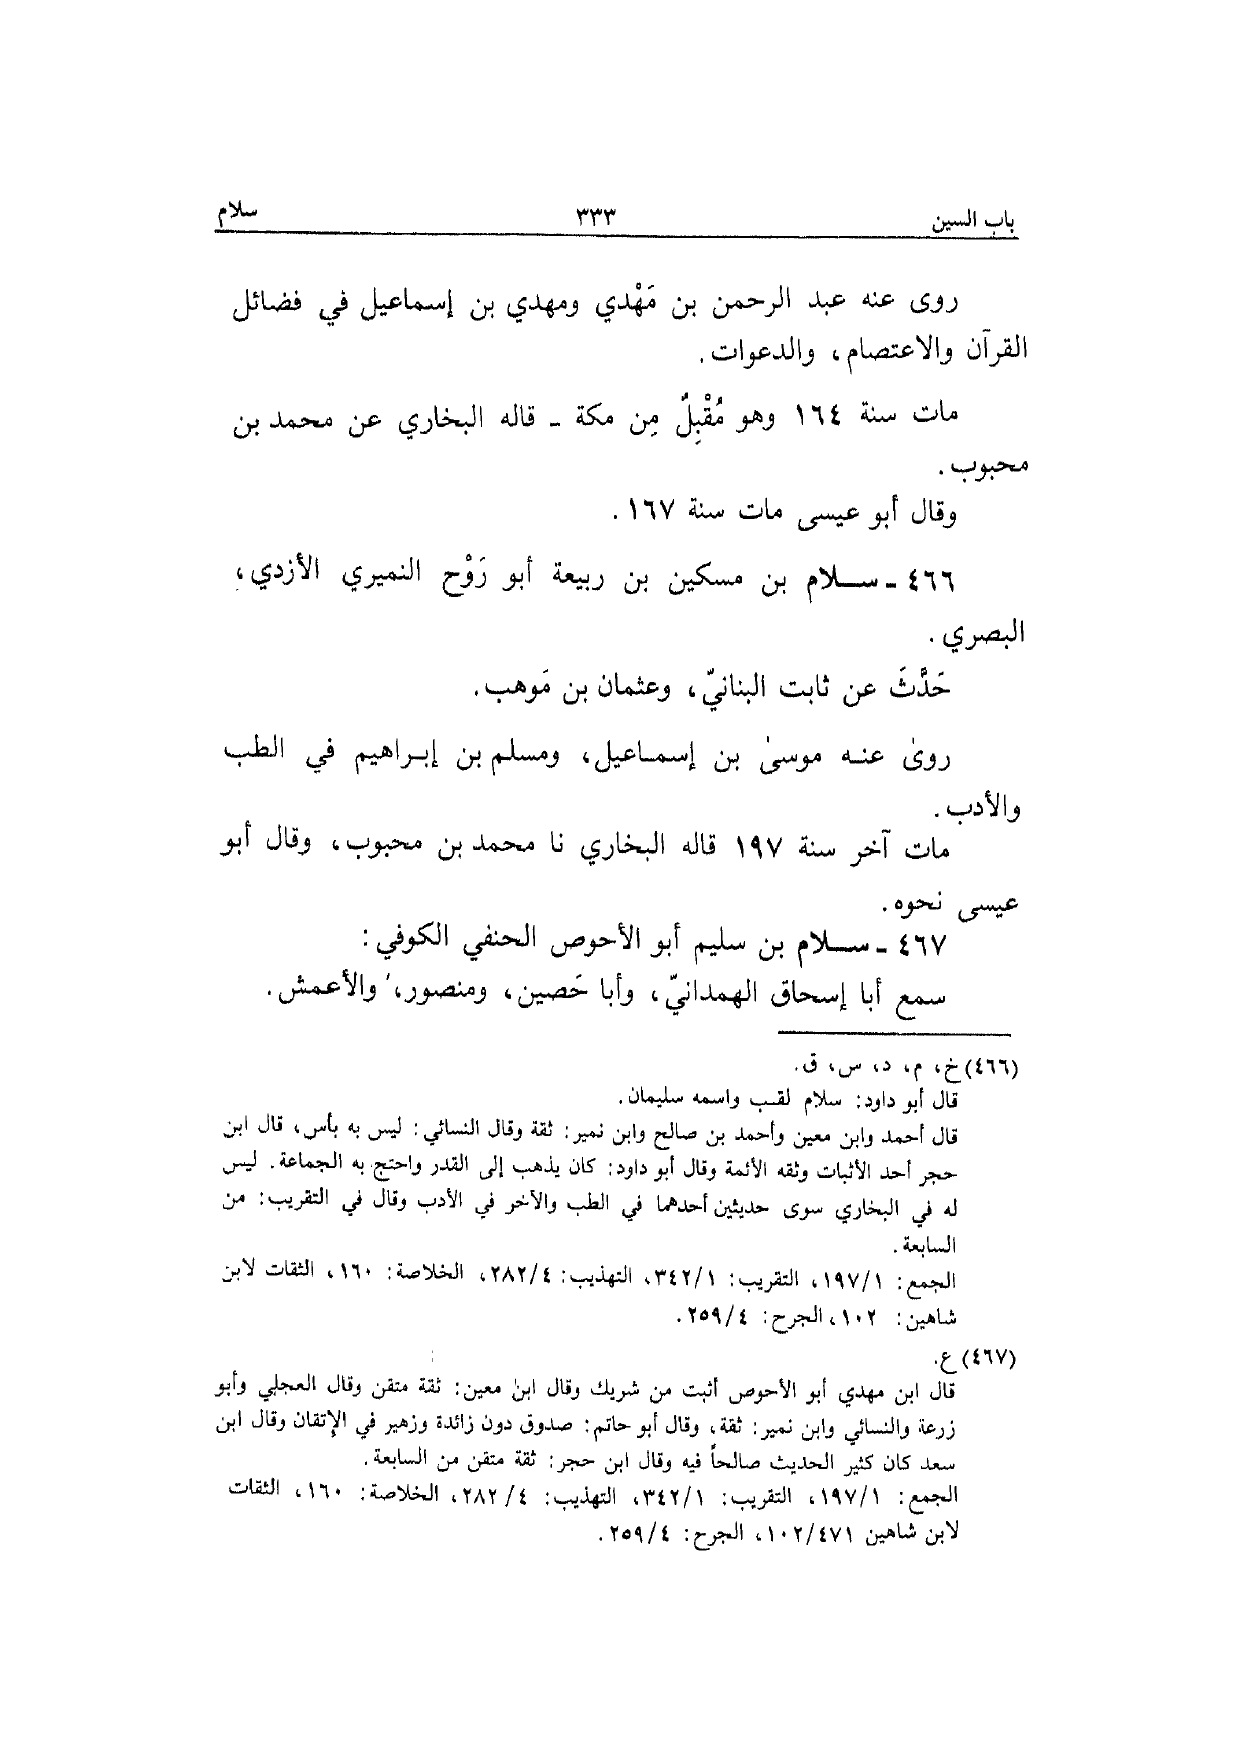 باب السين ٣٣٣ سلام
روى عنه عبد الرحمن بن مَهْدي ومهدي بن إسماعيل في فضائل
القرآن والاعتصام، والدعوات.
مات سنة ١٦٤ وهو مُقْبِلٌ مِن مكة ـ قاله البخاري عن محمد بن
محبوب.
وقال أبو عيسى مات سنة ١٦٧.
٤٦٦ ـ سـلام بن مسكين بن ربيعة أبو رَوْح النميري الأزدي،
البصري.
حَدَّثَ عن ثابت البنانيّ، وعثمان بن مَوهب.
روىٰ عنـه موسىٰ بن إسمـاعيل، ومسلم بن إبـراهيم في الطب
والأدب.
مات آخر سنة ١٩٧ قاله البخاري نا محمد بن محبوب، وقال أبو
عيسى نحوه.
٤٦٧ ـ سـلام بن سليم أبو الأحوص الحنفي الكوفي:
سمع أبا إسحاق الهمدانيّ، وأبا حَصين، ومنصور، والأعمش.
(٤٦٦) خ، م، د، س، ق.
قال أبو داود: سلام لقب واسمه سليمان.
قال أحمد وابن معين وأحمد بن صالح وابن نمير: ثقة وقال النسائي: ليس به بأس، قال ابن
حجر أحد الأثبات وثقه الأئمة وقال أبو داود: كان يذهب إلى القدر واحتج به الجماعة. ليس
له في البخاري سوى حديثين أحدهما في الطب والآخر في الأدب وقال في التقريب: من
السابعة.
الجمع: ١٩٧/١، التقريب: ٣٤٢/١، التهذيب: ٢٨٢/٤، الخلاصة: ١٦٠، الثقات لابن
شاهين: ١٠٢، الجرح: ٢٥٩/٤.
(٤٦٧) ع.
قال ابن مهدي أبو الأحوص أثبت من شريك وقال ابن معين: ثقة متقن وقال العجلي وأبو
زرعة والنسائي وابن نمير: ثقة، وقال أبو حاتم: صدوق دون زائدة وزهير في الإتقان وقال ابن
سعد كان كثير الحديث صالحاً فيه وقال ابن حجر: ثقة متقن من السابعة.
الجمع: ١٩٧/١، التقريب: ٣٤٢/١، التهذيب: ٢٨٢/٤، الخلاصة: ١٦٠، الثقات
لابن شاهين ١٠٢/٤٧١، الجرح: ٢٥٩/٤.